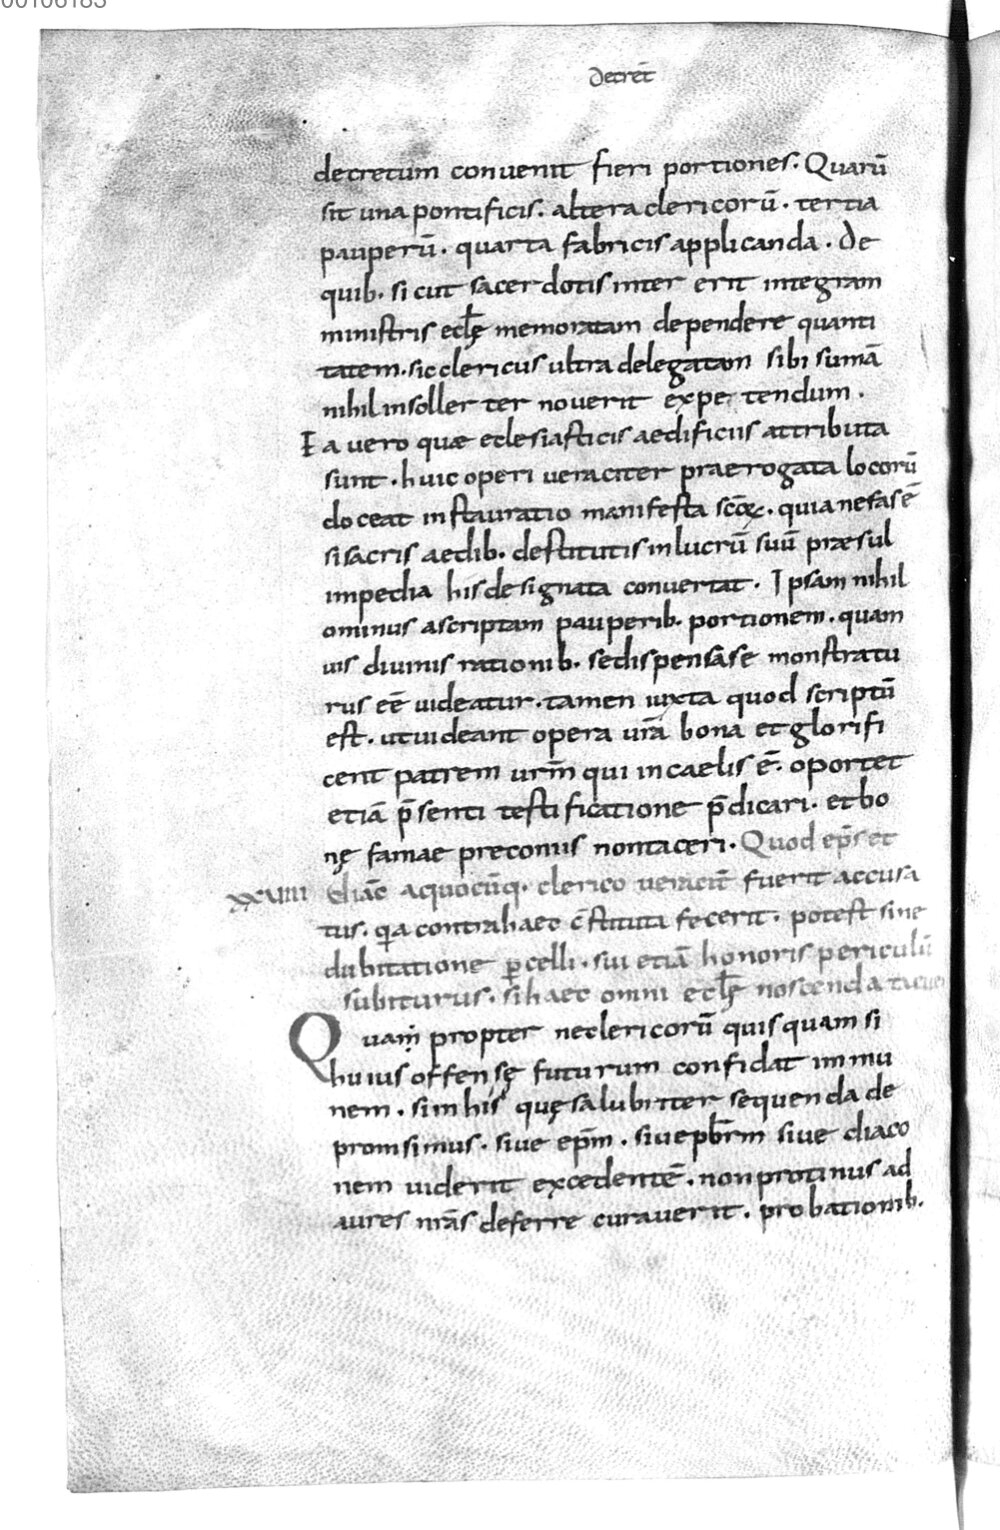 00106183
Decret̄
decretum convenit fieri portiones. Quarū
sit una pontificis. altera clericorū. tertia
pauperū. quarta fabricis applicanda. De
quib. sicut sacerdotis inter erit integram
ministris eclę memoratam dependere quanti
tatem. sic clericus ultra delegatam sibi sumā
nihil insollerter noverit expetendum.
Ea vero quæ eclesiasticis aedificiis attributa
sunt. huic operi veraciter praerogata locorū
doceat instauratio manifesta scōꝝ. quia nefas ē
si sacris aedib. destitutis in lucrū suū præsul
impedia his designata convertat. Ipsam nihil
ominus ascriptam pauperib. portionem. quam
vis divinis rationib. se dispensasse monstratu
rus eē videatur. tamen iuxta quod scriptū
est. ut videant opera vrā bona et glorifi
cent patrem vrm̄ qui in caelis ē. oportet
etiā p̄senti testificatione p̄dicari. et bo
nę famae preconiis non taceri. Quod ep̄s et
xxviiii diāc a quocūq. clerico veracit̄ fuerit accusa
tus. qa contra haec c̄stituta fecerit. potest sine
dubitatione ꝑcelli. sui etiā honoris periculū
subiturus. si haec omni eclę noscenda
Quam propter ne clericorū quisquam si
huius offensę futurum confidat immu
nem. si in his quę salubriter sequenda de
promsimus. sive epm̄. sive pbrm̄ sive diaco
nem viderit excedentē. non protinus ad
aures nrās deferre curaverit. probationib.